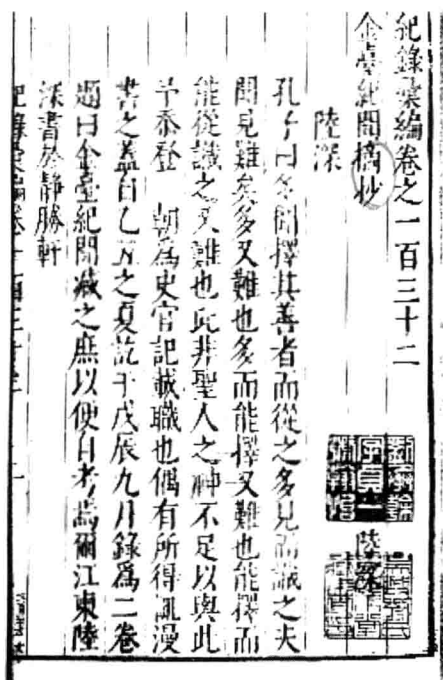 紀錄彙編卷之一百三十二
金臺紀聞摘抄
陸深
孔子曰多聞擇其善者而從之多見而識之夫
聞見難矣多又難也多而能擇又難也能擇而
能從識之又難也此非聖人之神不足以與此
予忝登 朝爲史官記載職也偶有所得輒漫
書之蓋自乙丑之夏訖于戊辰九月錄爲二卷
題曰金臺紀聞藏之庶以便自考焉爾江東陸
深書於靜勝軒
紀錄彙編卷一百三十二 一